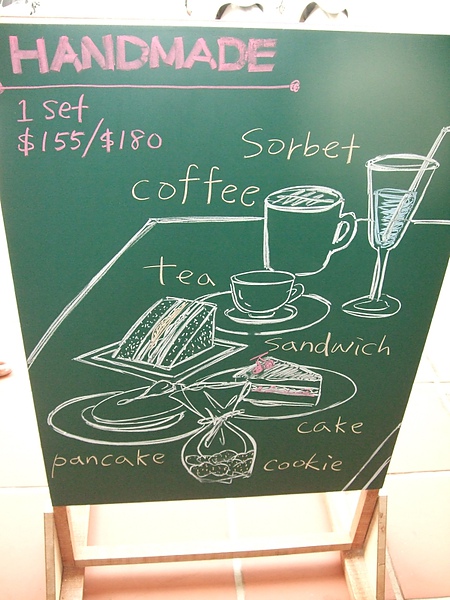 HANDMADE
1 set
$155/$180
Sorbet
coffee
tea
sandwich
cake
pancake
cookie